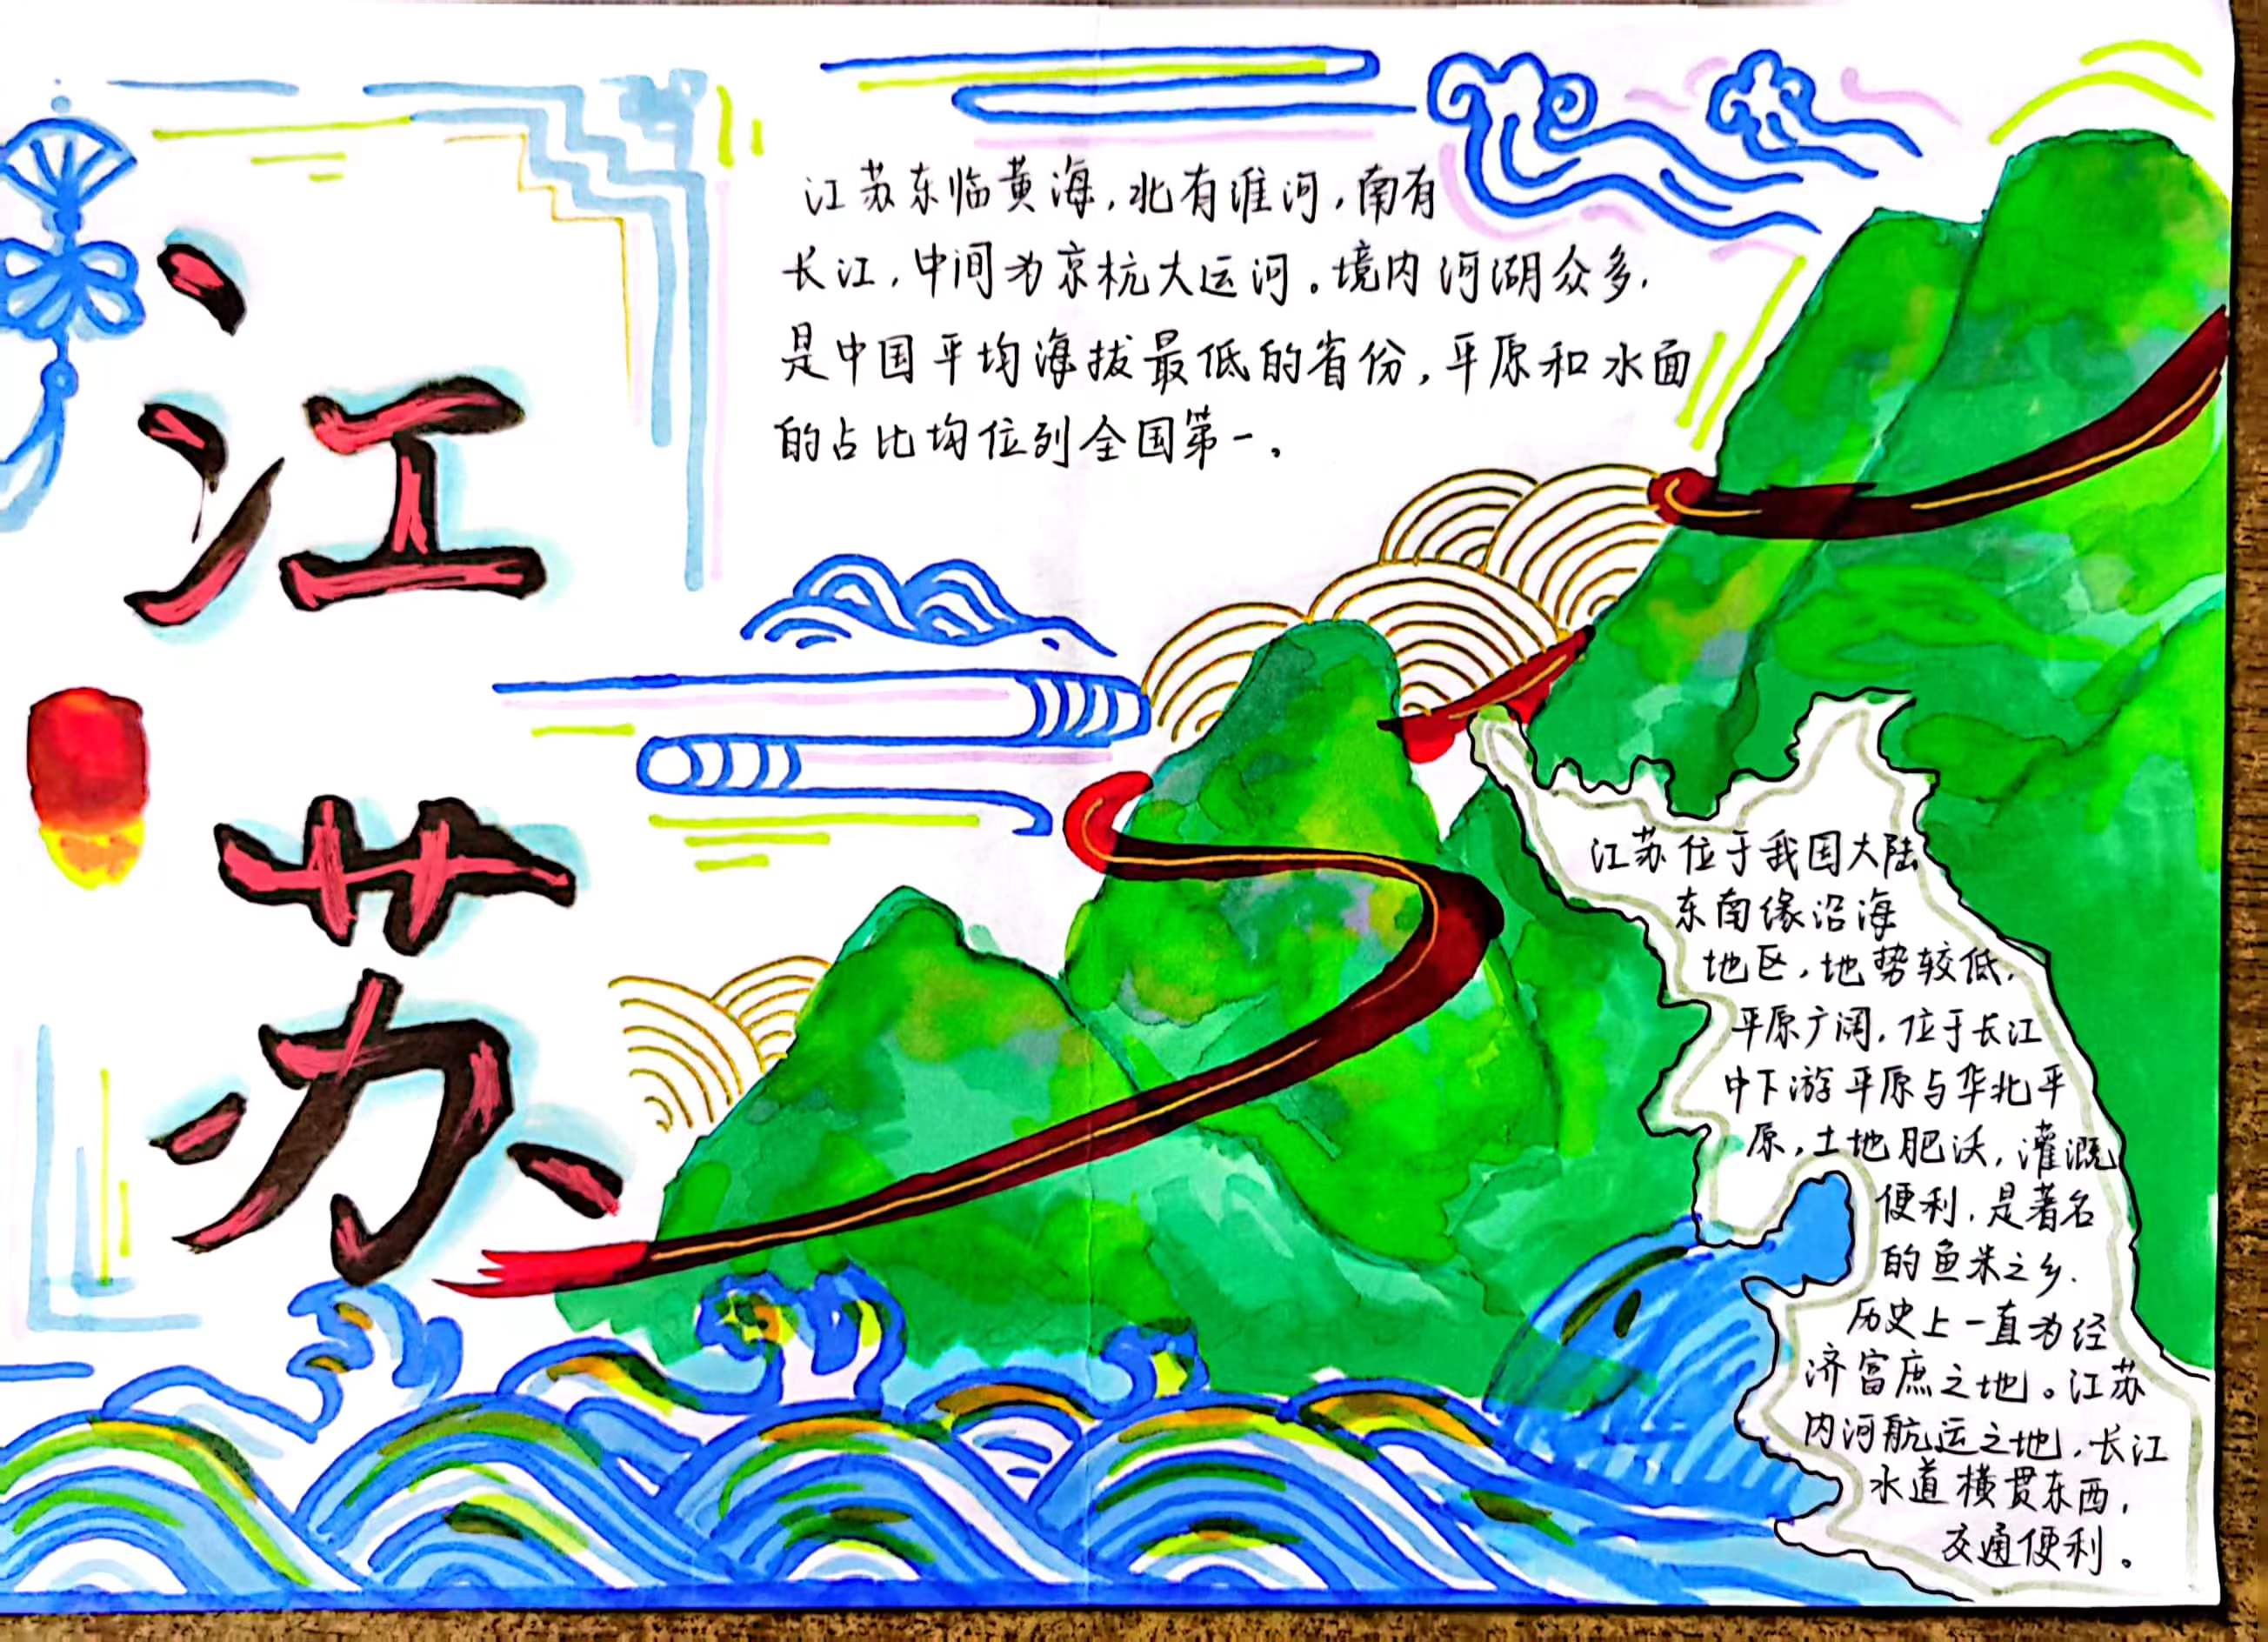 江苏
江苏东临黄海，北有淮河，南有
长江，中间为京杭大运河。境内河湖众多，
是中国平均海拔最低的省份，平原和水面
的占比均位列全国第一。
江苏位于我国大陆
东南缘沿海
地区，地势较低，
平原广阔，位于长江
中下游平原与华北平
原，土地肥沃，灌溉
便利，是著名
的鱼米之乡．
历史上一直为经
济富庶之地。江苏
内河航运之地，长江
水道横贯东西，
交通便利。